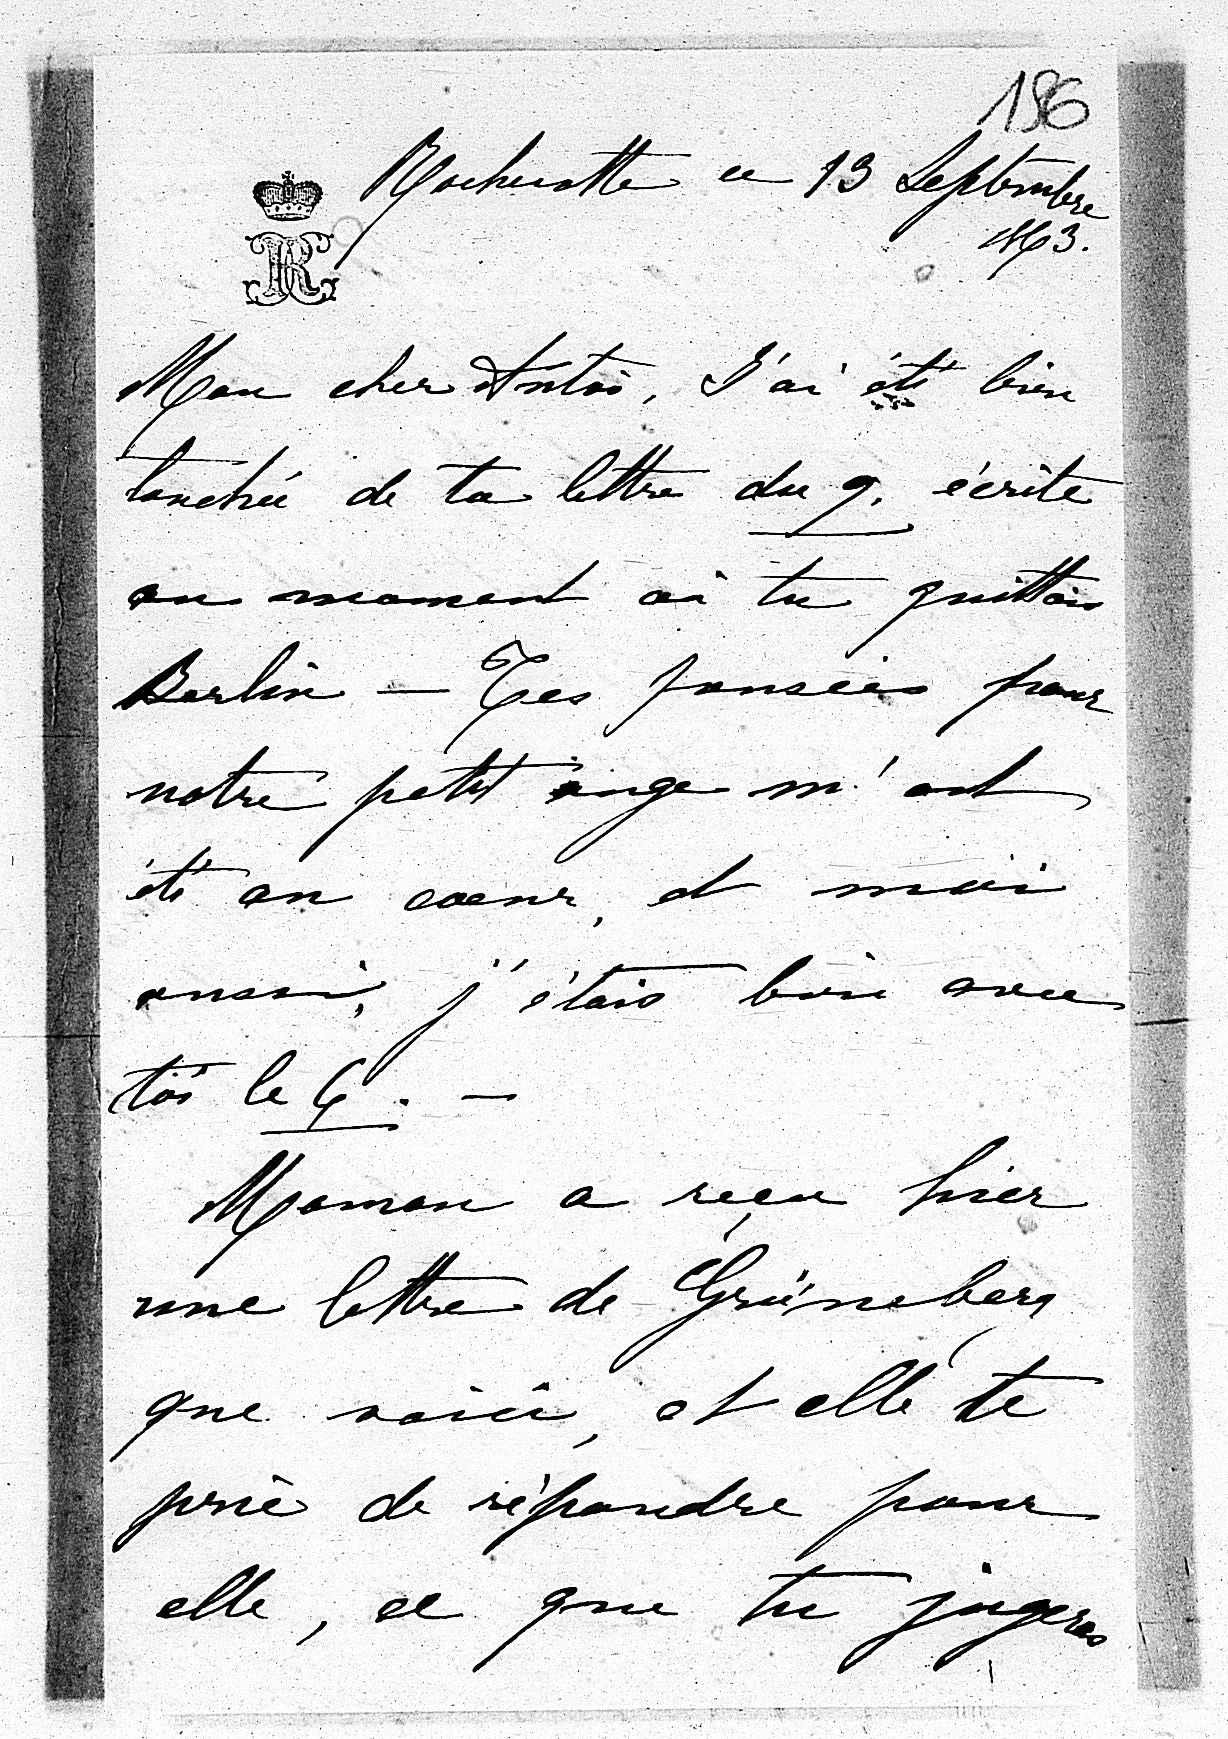 186
Rochecotte ce 13 Septembre
1863.
Mon cher Antoi, J'ai été bien
touchée de ta lettre du 9. écrite
au moment où tu quittais
Berlin — Tes pensées pour
notre petit ange m'ont
été au coeur, et moi
aussi, j'étais bien avec
toi le 6. —
Maman a reçu hier
une lettre de Grüneberg
que voici, et elle te
prie de répondre pour
elle, ce que tu jugeras